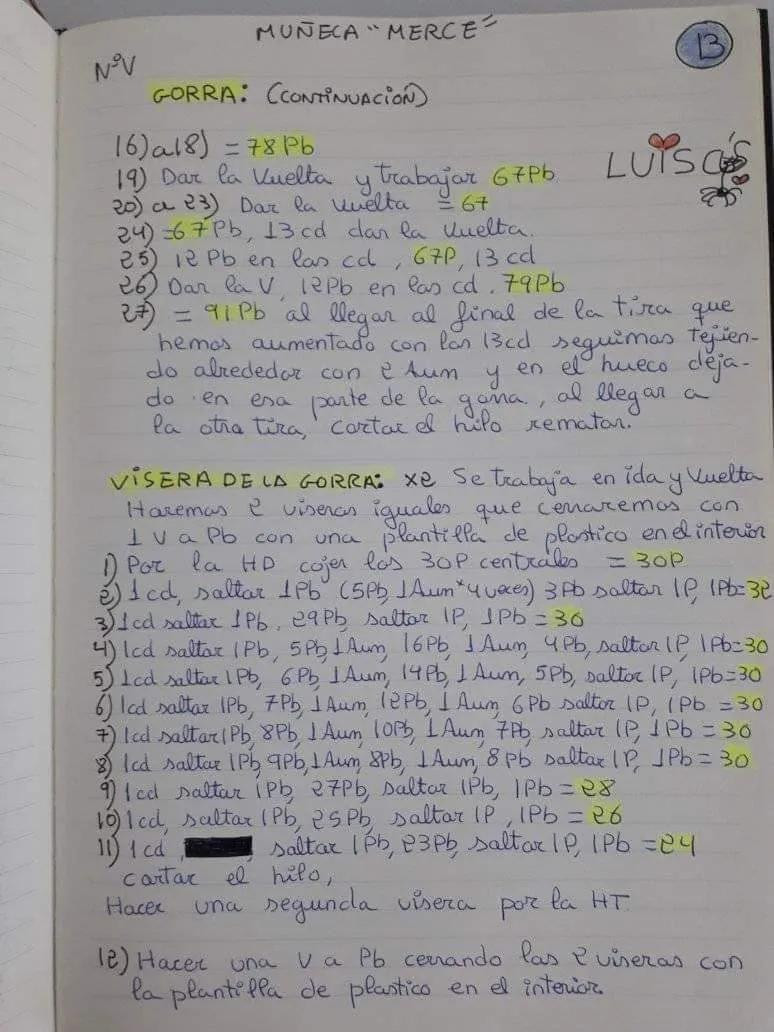 MUÑECA "MERCE"
13
NºV
GORRA: (CONTINUACIÓN)
16) a 18) = 78 Pb
LUISA'S
19) Dar la Vuelta y trabajar 67Pb
20) a 23) Dar la vuelta = 67
24) = 67 Pb, 13 cd dar la Vuelta.
25) 12 Pb en las cd, 67P, 13 cd
26) Dar la V, 12Pb en las cd. 79Pb
27) = 91Pb al llegar al final de la tira que
hemos aumentado con las 13cd seguimos tejien-
do alrededor con 2 Aum y en el hueco deja-
do en esa parte de la gorra, al llegar a
la otra tira, cortar el hilo rematar.
VISERA DE LA GORRA: X2 Se trabaja en ida y Vuelta
Haremos 2 viseras iguales que cerraremos con
1 V a Pb con una plantilla de plastico en el interior
1) Por la HD cojer los 30P centrales = 30P
2) 1 cd, saltar 1Pb (5Pb, 1Aum*4veces) 3Pb saltar 1P, 1Pb=32
3) 1cd saltar 1Pb, 29Pb, saltar 1P, 1Pb = 30
4) 1cd saltar 1Pb, 5Pb, 1Aum, 16Pb, 1Aum, 4Pb, saltar 1P, 1Pb=30
5) 1cd saltar 1Pb, 6Pb, 1Aum, 14Pb, 1Aum, 5Pb, saltar 1P, 1Pb=30
6) 1cd saltar 1Pb, 7Pb, 1Aum, 12Pb, 1Aum, 6Pb saltar 1P, 1Pb = 30
7) 1cd saltar 1Pb, 8Pb, 1Aum, 10Pb, 1Aum, 7Pb, saltar 1P, 1Pb = 30
8) 1cd saltar 1Pb, 9Pb, 1Aum, 8Pb, 1Aum, 8Pb saltar 1P, 1Pb = 30
9) 1cd saltar 1Pb, 27Pb, saltar 1Pb, 1Pb = 28
10) 1cd, saltar 1Pb, 25Pb, saltar 1P, 1Pb = 26
11) 1 cd, saltar 1Pb, 23Pb, saltar 1P, 1Pb = 24
cortar el hilo,
Hacer una segunda visera por la HT
12) Hacer una V a Pb cerrando las 2 viseras con
la plantilla de plastico en el interior.